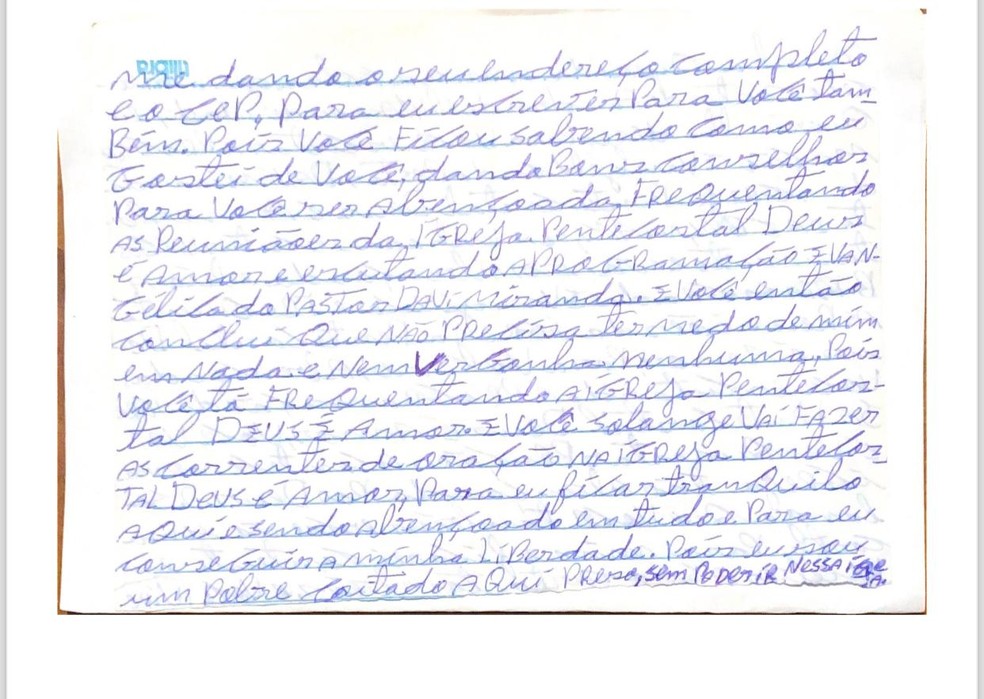 me dando o seu endereço completo
e o CEP, Para eu escrever Para Você tam-
Bém. Pois Você Ficou sabendo como eu
Gostei de Você, dando Bons Conselhos
Para Você ser Abençoada, FREQuentando
AS Reuniãoes da, IGReja Pentecostal Deus
é Amor e escutando A PROGRamação EVAN-
Gélica do PASTOR DAVi Miranda. E Você então
Conclui Que NÃO PRECisa ter medo de mim
em Nada e Nem VerGonha Nenhuma, Pois
Você tá FREQuentando A IGReja Pentecos-
tal DEUS É Amor. E Você Solange VAi FAZER
AS Correntes de oração NA IGReja Pentecos-
TAL DeuS é Amor, Para eu ficar tranQuilo
AQui e sendo Abençoado em tudo e Para eu
ConseGuir A minha LiBerdade. Pois eu sou
um Pobre Coitado AQui PReso, sem PodeR iR NESSA iGRe
JA.